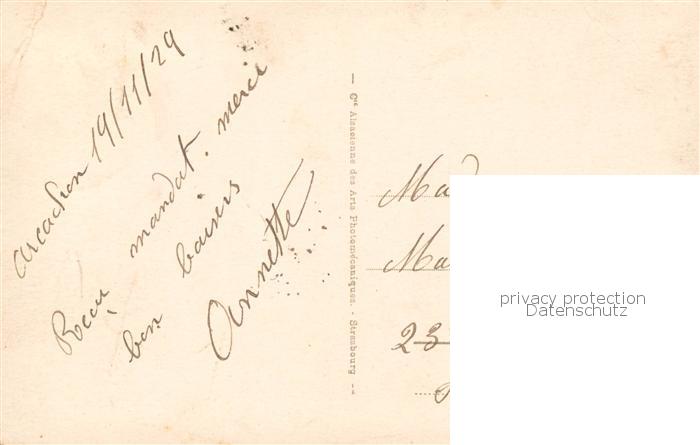 Arcachon 19/11/29
Recu mandat. merci
bon baisers
Annette
— Cie Alsacienne des Arts Photomécaniques. - Strasbourg —
Mad
Ma
23
privacy protection
Datenschutz